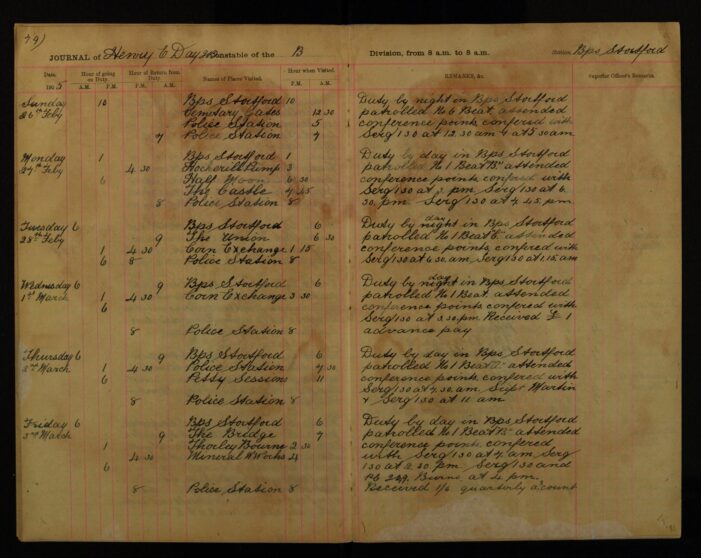 79)
JOURNAL of Henry C Day Constable of the B Division, from 8 a.m. to 8 a.m. Station Bps Stortford
Date. Hour of going on Duty. Hour of Return from Duty. Names of Places Visited. Hour when Visited. REMARKS, &c. Superior Officer's Remarks.
1905 A.M. P.M. P.M. A.M. P.M. A.M.
Sunday 10 Bps Stortford 10 Duty by night in Bps Stortford
26th Feby Cemetary Gates 12 30 patrolled No 6 Beat attended
Police Station 5 conference points confered with
7 Police Station 7 Serg 130 at 12.30 am & at 5.30 am
Monday 1 Bps Stortford 1 Duty by day in Bps Stortford
27th Feby 4 30 Hockerill Pump 3 patrolled No 1 Beat "B" attended
6 Half Moon 6 30 conference points confered with
The Castle 7 45 Serg 130 at 3 pm Serg 130 at 6.
8 Police Station 8 30. pm Serg 130 at 7.45 pm
Tuesday 6 Bps Stortford 6 Duty by day night in Bps Stortford
28th Feby 9 The Union 6 30 patrolled No 1 Beat attended
1 4 30 Corn Exchange 1 15 conference points confered with
6 8 Police Station 8 Serg 130 at 6.30 am Serg 130 at 1.15 am
Wednesday 6 9 Bps Stortford 6 Duty by day night in Bps Stortford
1st March 1 4 30 Corn Exchange 3 30 patrolled No 1 Beat attended
6 conference points confered with
Serg 130 at 3.30 pm Received £ 1
8 Police Station 8 advance pay
Thursday 6 9 Bps Stortford 6 Duty by day in Bps Stortford
2nd March 1 4 30 Police Station 7 30 patrolled No 1 Beat attended
6 Petty Sessions 11 conference points confered with
Serg 130 at 7.30 am Supt Martin
8 Police Station 8 & Serg 130 at 11 am
Friday 6 Bps Stortford 6 Duty by day in Bps Stortford
3rd March 9 The Bridge 7 patrolled No 1 Beat "B" attended
1 Thorley Bourne 2 30 conference points confered
4 30 Mineral W Works 4 with Serg 130 at 7 am Serg
6 130 at 2.30 pm Serg 130 and
Pc 229 Burns at 4 pm.
8 Police Station 8 Received 1/6 quarterly account